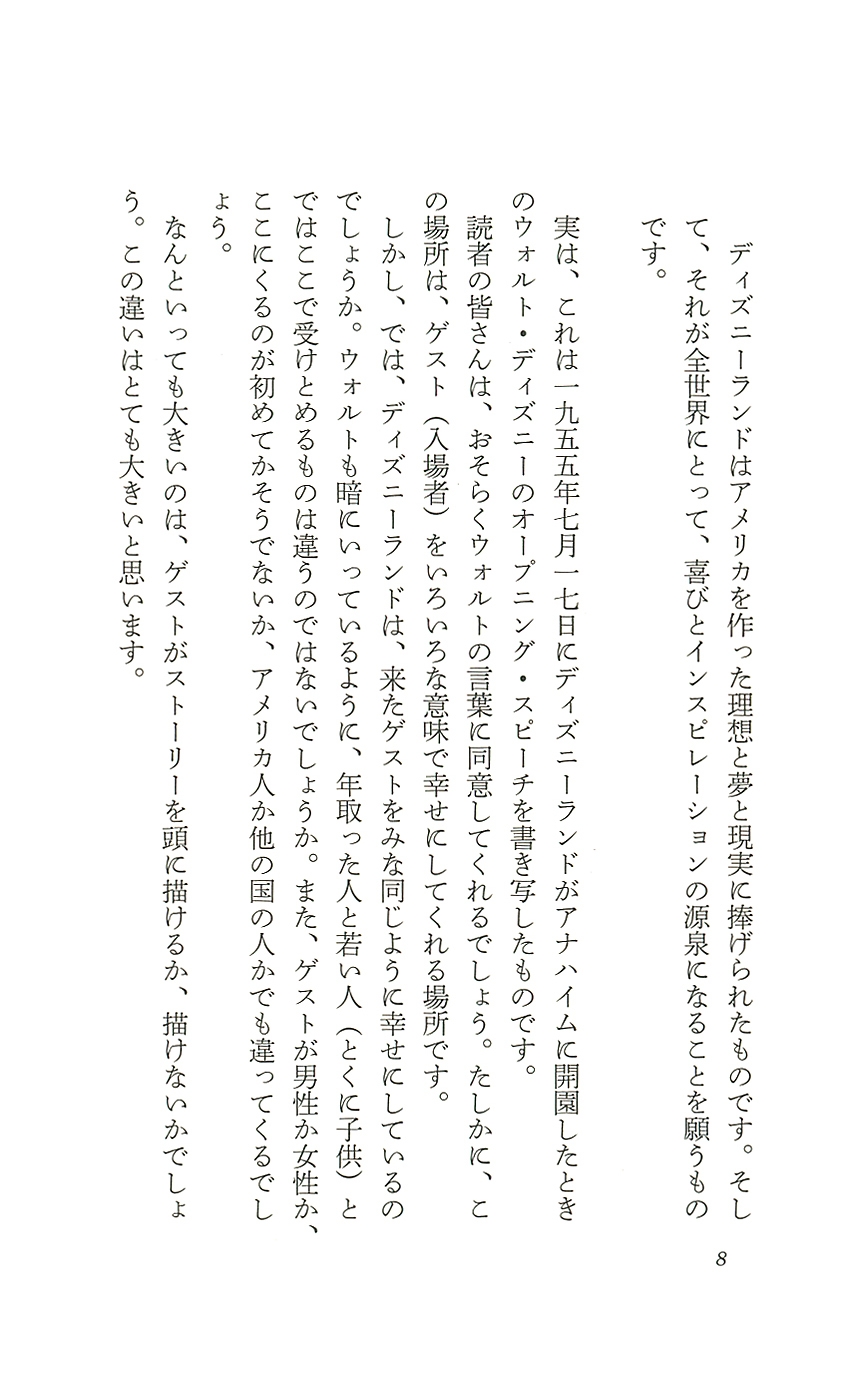 ディズニーランドはアメリカを作った理想と夢と現実に捧げられたものです。そし
て、それが全世界にとって、喜びとインスピレーションの源泉になることを願うもの
です。
実は、これは一九五五年七月一七日にディズニーランドがアナハイムに開園したとき
のウォルト・ディズニーのオープニング・スピーチを書き写したものです。
読者の皆さんは、おそらくウォルトの言葉に同意してくれるでしょう。たしかに、こ
の場所は、ゲスト（入場者）をいろいろな意味で幸せにしてくれる場所です。
しかし、では、ディズニーランドは、来たゲストをみな同じように幸せにしているの
でしょうか。ウォルトも暗にいっているように、年取った人と若い人（とくに子供）と
ではここで受けとめるものは違うのではないでしょうか。また、ゲストが男性か女性か、
ここにくるのが初めてかそうでないか、アメリカ人か他の国の人かでも違ってくるでし
ょう。
なんといっても大きいのは、ゲストがストーリーを頭に描けるか、描けないかでしょ
う。この違いはとても大きいと思います。
8